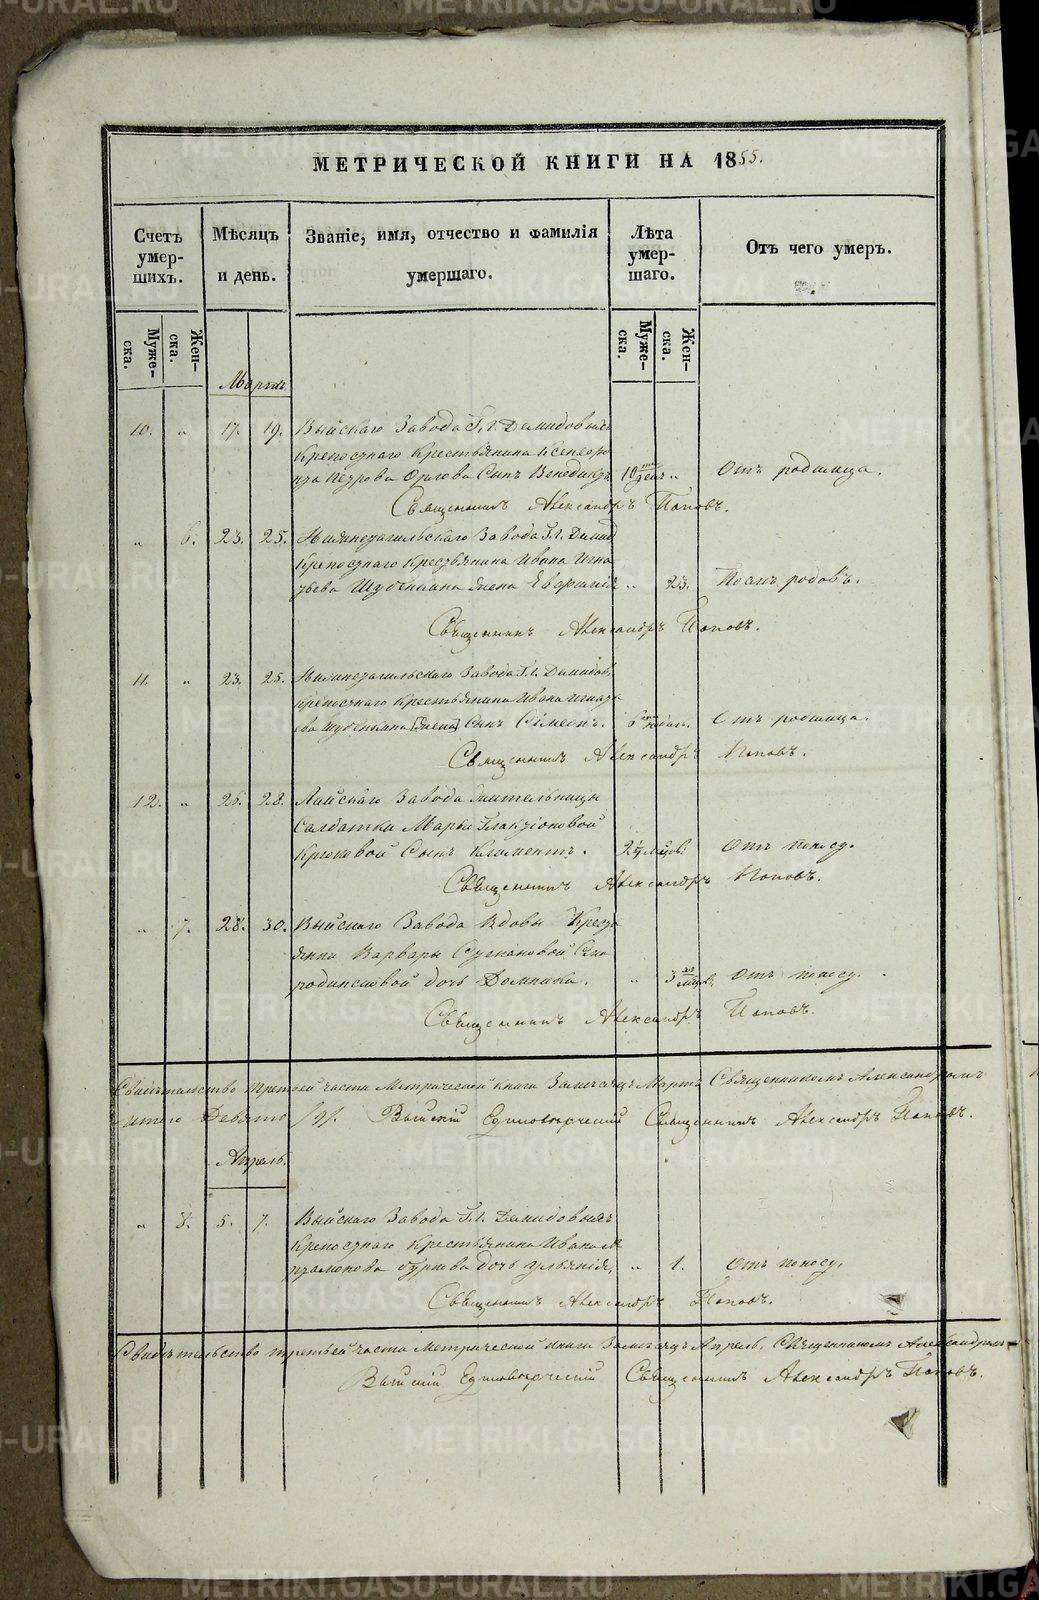 МЕТРИЧЕСКОЙ КНИГИ НА 1855.
Счетъ умер-шихъ.
Мѣсяцъ и день.
Званіе, имя, отчество и фамилія умершаго.
Лѣта умер-шаго.
Отъ чего умеръ.
Муже-ска.
Жен-ска.
Муже-ска.
Жен-ска.
Мартъ.
10. „ 17. 19. Выйскаго Завода Гг. Демидовыхъ
крепостнаго крестьянина
Петрова Орлова Сынъ Венедиктъ 10 дней „ Отъ родимца.
Священникъ Александръ Поповъ.
„ 6. 23. 25. Нижнетагильскаго Завода Гг. Демид
крепостнаго крестьянина Ивана Игна
тьева жена „ 23. Послѣ родовъ.
Священникъ Александръ Поповъ.
11. „ 23. 25. Нижнетагильскаго Завода Гг. Демидов
крепостнаго крестьянина Ивана Игнать
ева [жена] Сынъ Сімеонъ. Отъ родимца.
Священникъ Александръ Поповъ.
12. „ 26. 28. Лайскаго Завода жительницы
Солдатки Марьи Галактіоновой
Крюковой Сынъ Климентъ. Отъ поносу.
Священникъ Александръ Поповъ.
„ 7. 28. 30. Выйскаго Завода Вдовы Кресть
янки Варвары Степановой
дочь Домника. „ 3 Отъ поносу.
Священникъ Александръ Поповъ.
Свидѣтельство третьей части Метрической книги За мѣсяцъ Мартъ Священникомъ Александромъ
итого Девять /9/. Выйскій Единовѣрческій Священникъ Александръ Поповъ.
Апрель.
„ 8. 5. 7. Выйскаго Завода Гг. Демидовыхъ
крепостнаго крестьянина Ивана
дочь Ульянія, „ 1. Отъ поносу.
Священникъ Александръ Поповъ.
Свидѣтельство третьей части Метрической книги За мѣсяцъ Апрель. Священникомъ Александромъ
Выйскій Единовѣрческій Священникъ Александръ Поповъ.
METRIKI.GASO-URAL.RU